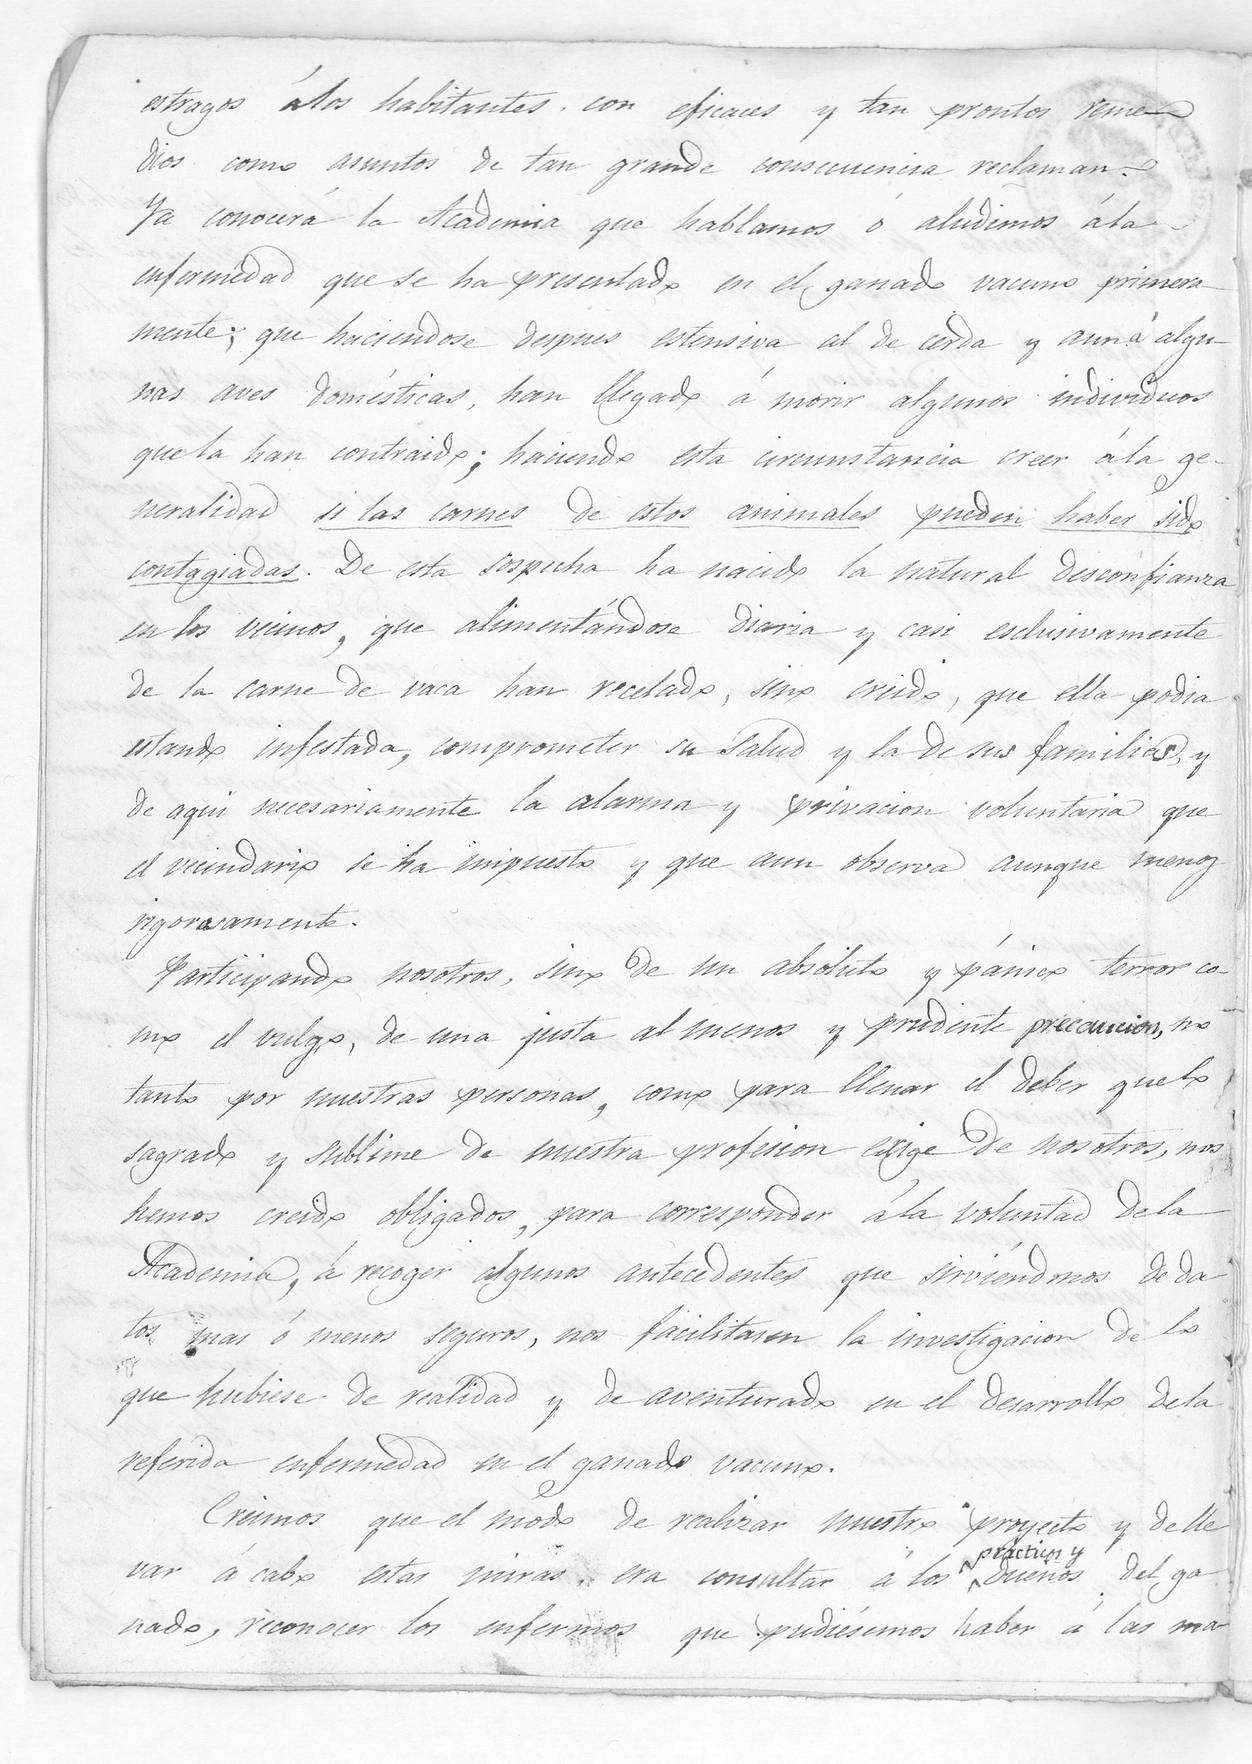 estragos á los habitantes con eficaces y tan prontos reme-
dios como asuntos de tan grande consecuencia reclaman.
Ya conocerá la Academia que hablamos ó aludimos á la
enfermedad que se ha presentado en el ganado vacuno primera-
mente; que haciendose despues estensiva al de cerda y aun á algu-
nas aves domésticas, han llegado á morir algunos individuos
que la han contraido; haciendo esta circunstancia creer á la ge-
neralidad si las carnes de estos animales pueden haber sido
contagiadas. De esta sospecha ha nacido la natural desconfianza
en los vecinos, que alimentándose diaria y casi esclusivamente
de la carne de vaca han recelado, sino creido, que ella podia
estando infestada, comprometer su salud y la de sus familias, y
de aqui necesariamente la alarma y privacion voluntaria que
el vecindario se ha impuesto y que aun observa aunque menos
rigorosamente.
Participando nosotros, sino de un absoluto y pánico terror co-
mo el vulgo, de una justa al menos y prudente precaucion, no
tanto por nuestras personas, como para llenar el deber que lo
sagrado y sublime de nuestra profesion exige de nosotros, nos
hemos creido obligados, para corresponder á la voluntad de la
Academia, á recoger algunos antecedentes que sirviéndonos de da-
tos mas ó menos seguros, nos facilitasen la investigacion de lo
que hubiese de realidad y de aventurado en el desarrollo de la
referida enfermedad en el ganado vacuno.
Creimos que el modo de realizar nuestro proyecto y de lle
practicos y
var á cabo estas miras era consultar á los dueños del ga
nado, reconocer los enfermos que pudiésemos haber á las ma